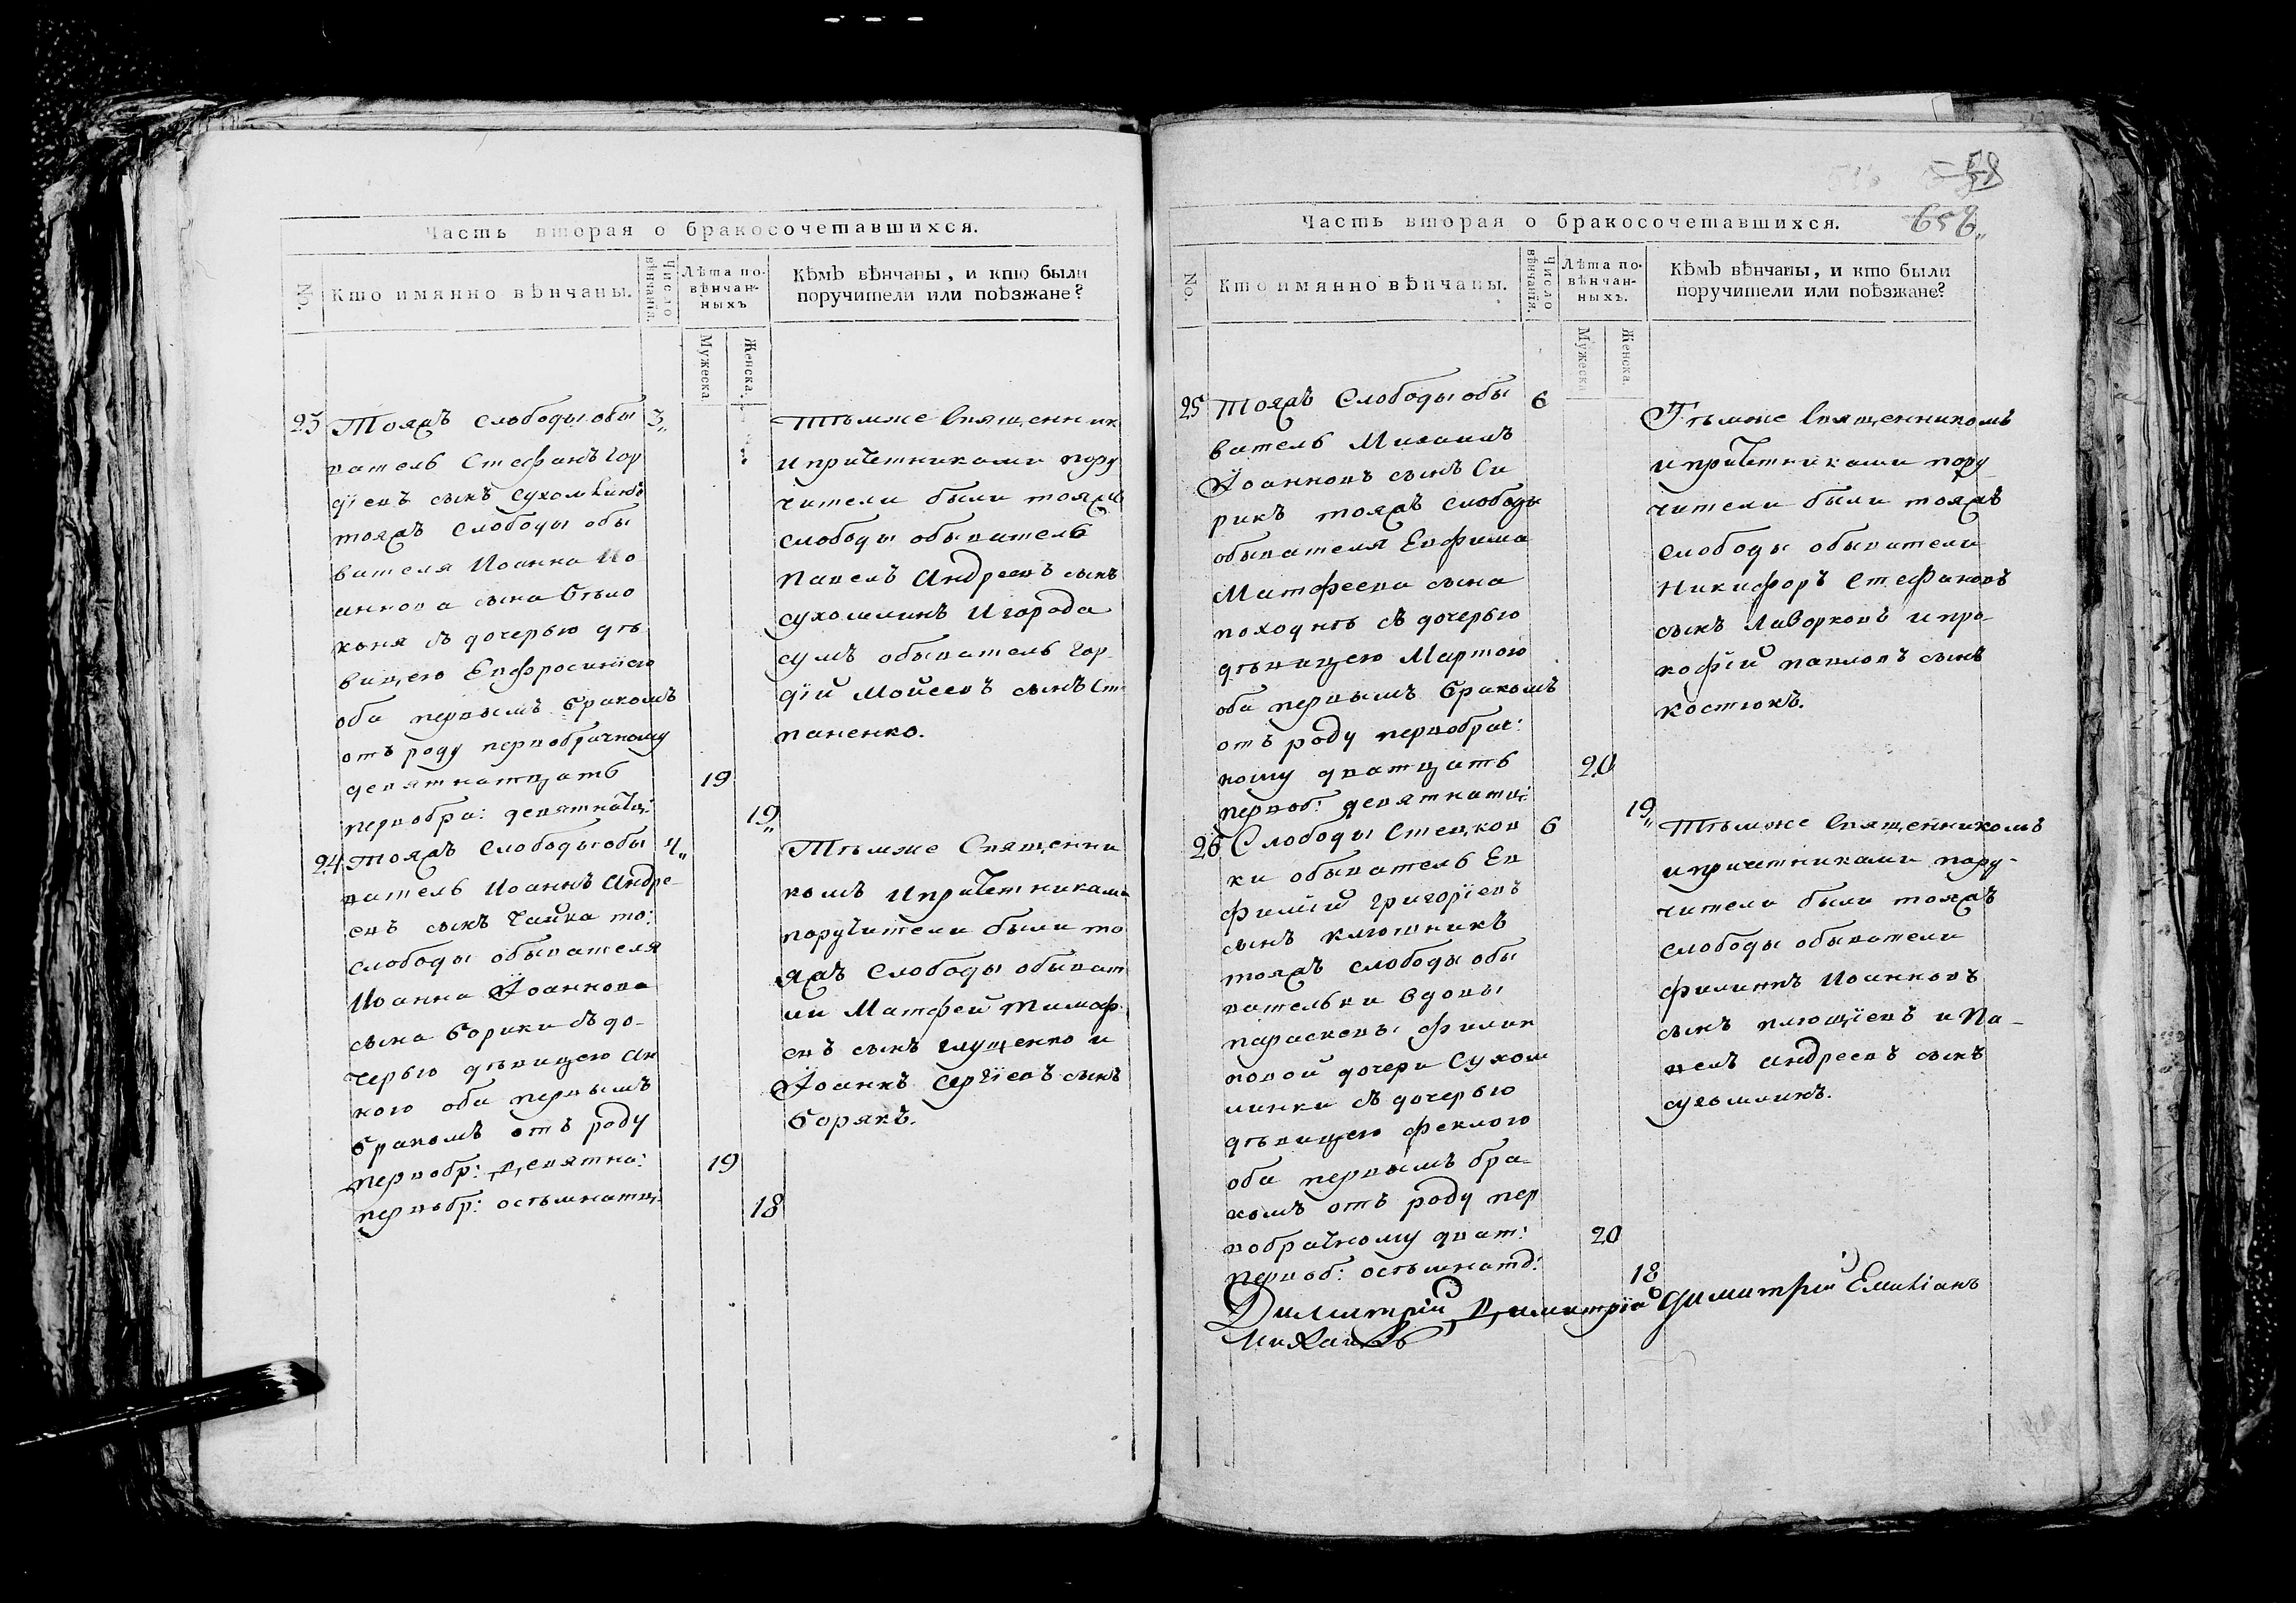 Часть вторая о бракосочетавшихся.
№.
Кто имянно вѣнчаны.
Число вѣнчанія.
Лѣта по-
вѣнчан-
ныхъ
Мужеска.
Женска.
Кѣмъ вѣнчаны, и кто были
поручители или поѣзжане?
23
Тояжъ слободы обы
ватель Стефанъ Гор
дїевъ сынъ Сухомлинъ
тояжъ слободы обы
вателя Иоанна Ио
аннова сына Бѣло
коня съ дочерью дѣ
вицею Евфросинїею
оба первымъ бракомъ
отъ роду первобрачному
девятнатцать
первобра: девятнатц:
3„
19
19„
Тѣмже Священник
и причетниками пору
чители были тояжъ
слободы обыватель
Павелъ Андреевъ сынъ
Сухомлинъ и города
Сумъ обыватель Гор
дїй Мойсеевъ сынъ Сте
паненко.
24
Тояжъ слободы обы
ватель Иоаннъ Андре-
евъ сынъ Чайка то:
слободы обывателя
Иоанна Іоаннова
сына Борики съ до-
черью дѣвицею Ан
ною оба первымъ
бракомъ отъ роду
первобр: девятна:
первобр: осѣмнатц:
4„
19
18
Тѣмже Священни
комъ и причетниками
поручители были то
яжъ слободы обыват
ли Матфей Тимоф
евъ сынъ Глущенко и
Іоаннъ Сергїевъ сынъ
Борякъ.
Часть вторая о бракосочетавшихся.
658„
№
Кто имянно вѣнчаны.
Число вѣнчанія.
Лѣта по-
вѣнчан-
ныхъ.
Мужеска
Женска.
Кѣмъ вѣнчаны, и кто были
поручители или поѣзжане?
25
Тояжъ Слободы обы
ватель Михаилъ
Іоанновъ сынъ Си
рикъ тояжъ слободы
обывателя Евфима
Матфеева сына
съ дочерью
дѣвицею Марфою
оба первымъ бракомъ
отъ роду первобрач:
ному дватцать
первоб: девятнатц:
6
20
19„
Тѣмже Священникомъ
и причетниками пору
чители были тояжъ
слободы обыватели
Никифоръ Стефановъ
сынъ Лаворковъ и Про-
кофїй Павловъ сынъ
Костюкъ.
26
Слободы Стецков
ки обыватель Ев
фимїй Григорїевъ
сынъ Ключникъ
тояжъ слободы обы
вательки вдовы
Парасковы Филип
повой дочери Сухом
линки съ дочерью
дѣвицею Феклою
оба первымъ бра-
комъ отъ роду пер
вобрачному дват:
первоб: осѣмнатд:
6
20
18
Тѣмже Священникомъ
и причетниками пору-
чители были тояжъ
слободы обыватели
Филиппъ Иоанновъ
сынъ Плющїевъ и Па-
велъ Андреевъ сынъ
Сухомлинъ.
Димитрій Димитрїй Димитрій Емиліанъ
Михаилъ